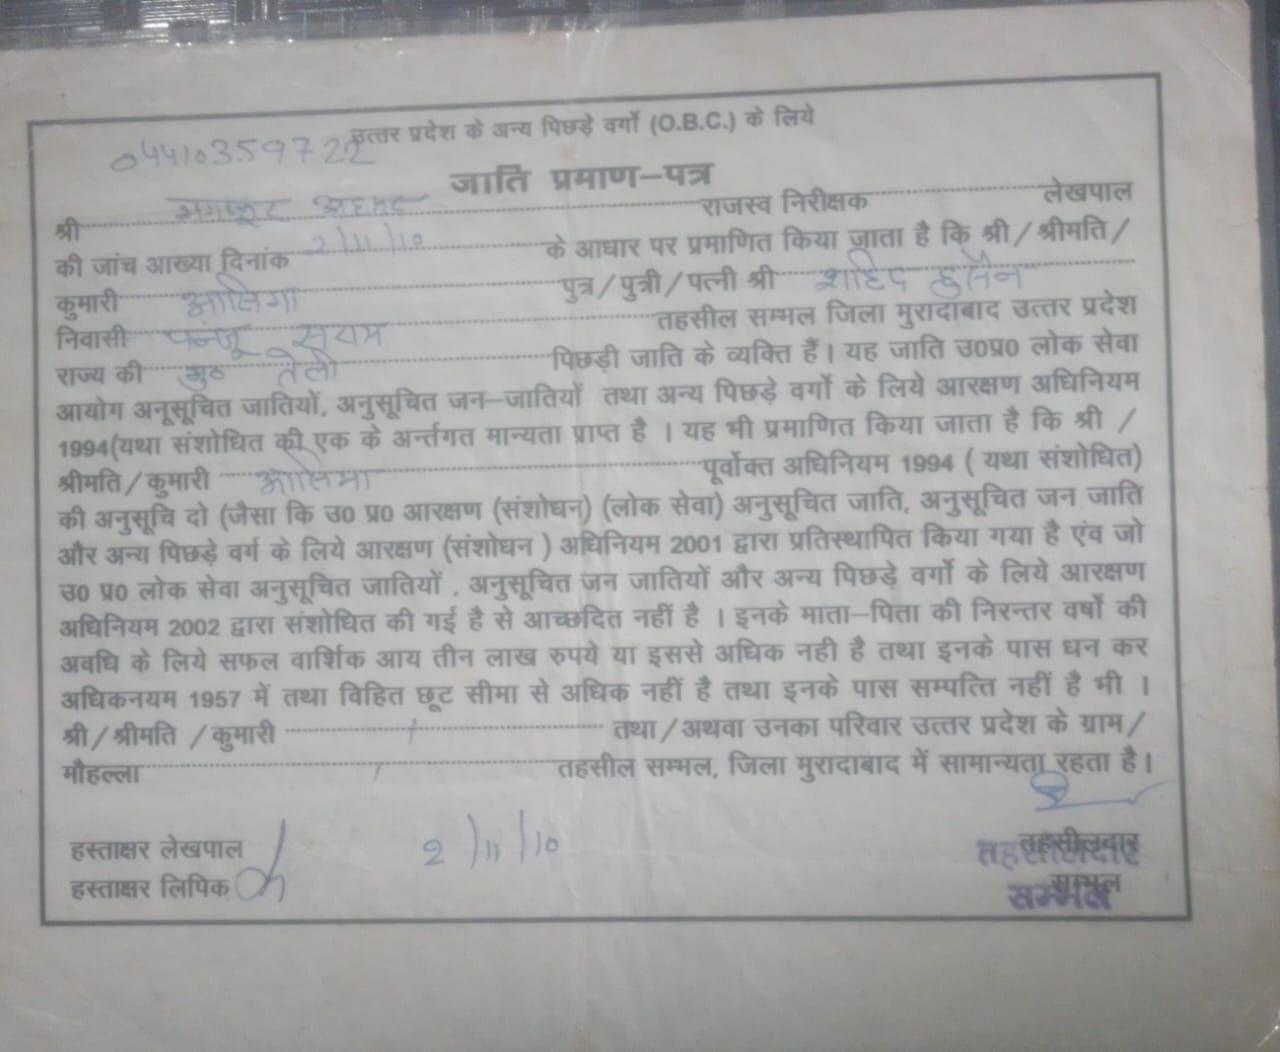 उत्तर प्रदेश के अन्य पिछड़े वर्गो (O.B.C.) के लिये
04410359722
जाति प्रमाण-पत्र
श्री अहमद राजस्व निरीक्षक लेखपाल
की जांच आख्या दिनांक 2/11/10 के आधार पर प्रमाणित किया जाता है कि श्री/श्रीमति/
कुमारी आसिमा पुत्र/पुत्री/पत्नी श्री शाहिद हुसैन
निवासी पन्जू सराय तहसील सम्भल जिला मुरादाबाद उत्तर प्रदेश
राज्य की मु० तेली पिछड़ी जाति के व्यक्ति हैं। यह जाति उ0प्र0 लोक सेवा
आयोग अनुसूचित जातियों, अनुसूचित जन-जातियों तथा अन्य पिछड़े वर्गो के लिये आरक्षण अधिनियम
1994(यथा संशोधित की एक के अर्न्तगत मान्यता प्राप्त है । यह भी प्रमाणित किया जाता है कि श्री /
श्रीमति/कुमारी आसिमा पूर्वोक्त अधिनियम 1994 ( यथा संशोधित)
की अनुसूचि दो (जैसा कि उ0 प्र0 आरक्षण (संशोधन) (लोक सेवा) अनुसूचित जाति, अनुसूचित जन जाति
और अन्य पिछड़े वर्ग के लिये आरक्षण (संशोधन ) अधिनियम 2001 द्वारा प्रतिस्थापित किया गया है एंव जो
उ0 प्र0 लोक सेवा अनुसूचित जातियों , अनुसूचित जन जातियों और अन्य पिछड़े वर्गो के लिये आरक्षण
अधिनियम 2002 द्वारा संशोधित की गई है से आच्छदित नहीं है । इनके माता-पिता की निरन्तर वर्षो की
अवधि के लिये सफल वार्शिक आय तीन लाख रुपये या इससे अधिक नही है तथा इनके पास धन कर
अधिकनयम 1957 में तथा विहित छूट सीमा से अधिक नहीं है तथा इनके पास सम्पत्ति नहीं है भी ।
श्री/श्रीमति /कुमारी तथा/अथवा उनका परिवार उत्तर प्रदेश के ग्राम/
मौहल्ला तहसील सम्भल, जिला मुरादाबाद में सामान्यता रहता है।
हस्ताक्षर लेखपाल 2/11/10 तहसीलदार
तहसीलदार
हस्ताक्षर लिपिक सम्भल
सम्भल